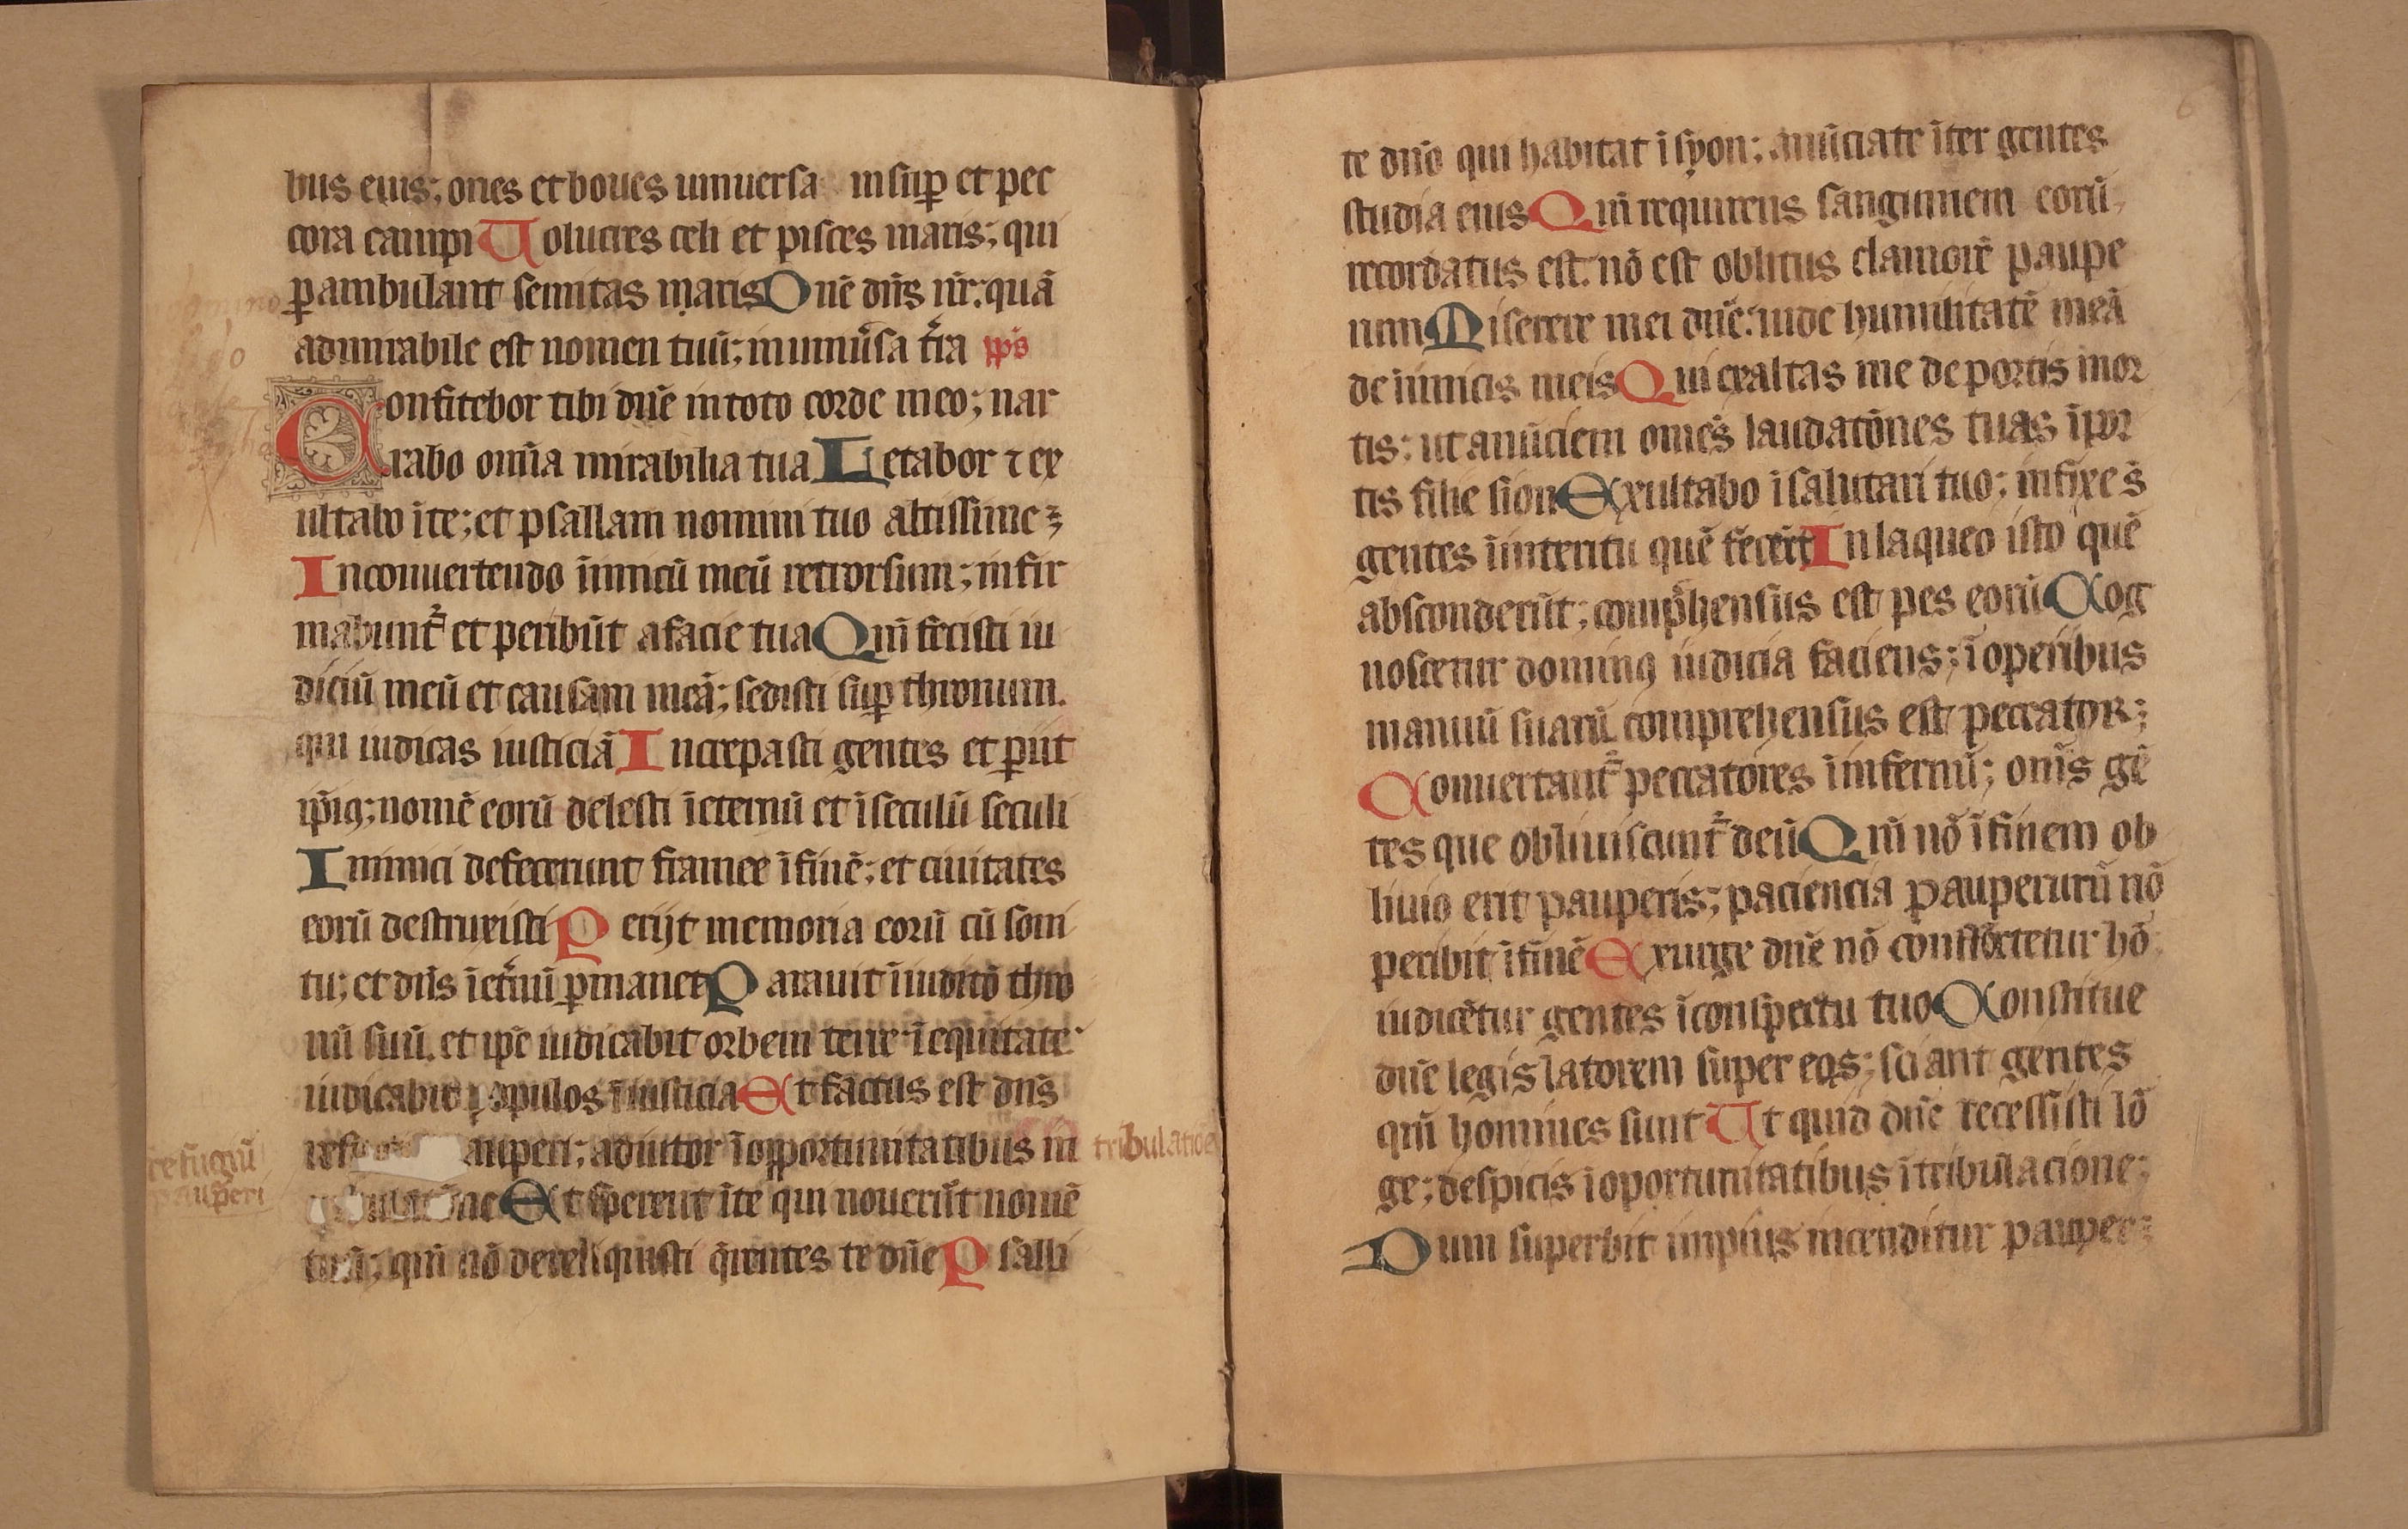 bus eius; oues et boues uniuersa insuꝑ et pec
cora campi Uolucres celi et pisces maris; qui
ꝑambulant semitas maris Dnē dn̄s nr̄: quā
admirabile est nomen tuū; inuniu̾sa t̾ra pͫs
Confitebor tibi dn̄e in toto corde meo; nar
rabo om̄ia mirabilia tua Letabor ⁊ ex
ultabo ī te; et psallam nomini tuo altissime
In conuertendo īimicū meū retrorsum; infir
mabunt᷑ et peribūt a facie tua Qm̄ fecisti iu
diciū meū et causam meā; sedisti suꝑ thronum.
qui iudicas iusticiā Increpasti gentes et ꝑiit
īpiꝯ; nomē eorū delesti ī eternū et ī seculū seculi
Inimici defecerunt framee ī finē; et ciuitates
eorū destruxisti Perijt memoria eorū cū soni
tu; et dn̄s ī et̾nū ꝑmanet Parauit ī iudicō thro
nū suū. et ip̄e iudicabit orbem terre ī equitate
iudicabit populos ī iusticia Et factus est dn̄s
auperi; adiutor ī opportunitatibus in tribulatiōe
refugiū
pauperi
Et sperent ī te qui nouerūt nomē
tuū; qm̄ nō dereliquisti q̄rentes te dn̄e Psalli
te dn̄o qui habitat ī syon; anūciate īter gentes
studia eius Qm̄ requirens sanguinem eorū
recordatus est. nō est oblitus clamorē paupe
rum Miserere mei dn̄e: uide humilitatē meā
de inimicis meis Qui exaltas me de portis mor
tis; ut anūciem omēs laudatōnes tuas ī por
tis filie sion Exultabo ī salutari tuo; infixe s̄
gentes ī interitu quē fecer̄t In laqueo isto quē
absconderūt; comp̄hensus est pes eorū Cog
noscetur dominꝯ iudicia faciens; ī operibus
manuū suarū comprehensus est peccator;
Conuertant᷑ peccatores ī infernū; om̄s gē
tes que obliuiscunt᷑ deū Qm̄ nō ī finem ob
liuio erit pauperis; paciencia pauperurū nō
peribit ī finē Exurge dn̄e nō confortetur hō
iudicētur gentes ī conspectu tuo Constitue
dn̄e legislatorem super eos; sciant gentes
qm̄ homines sunt Ut quid dn̄e recessisti lō
ge; despicis ī oportunitatibus ī tribulacione;
Dum superbit impius incenditur pauper;